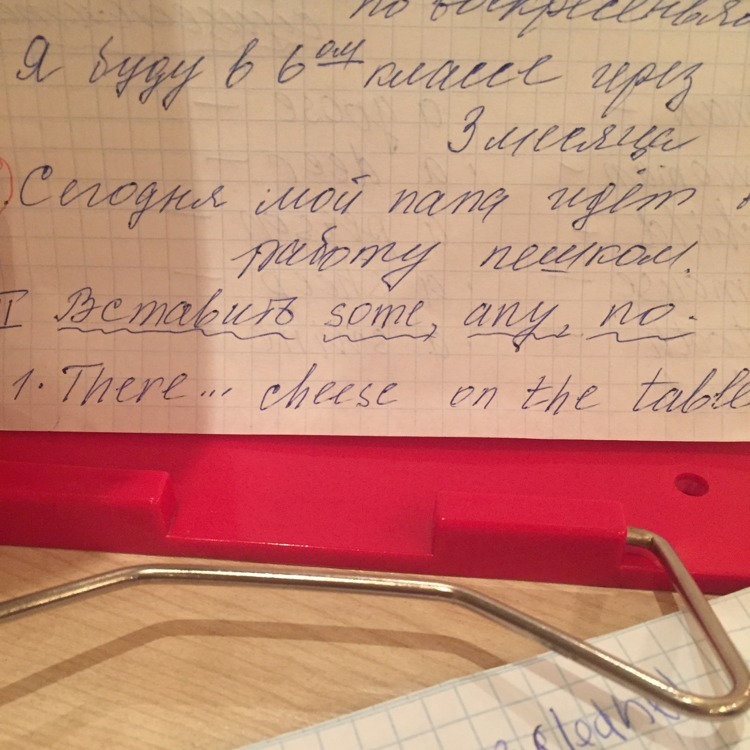 по воскресеньям
Я буду в 6ом классе через
3 месяца
Сегодня мой папа идёт
работу пешком.
I Вставить some, any, no.
1. There... cheese on the table